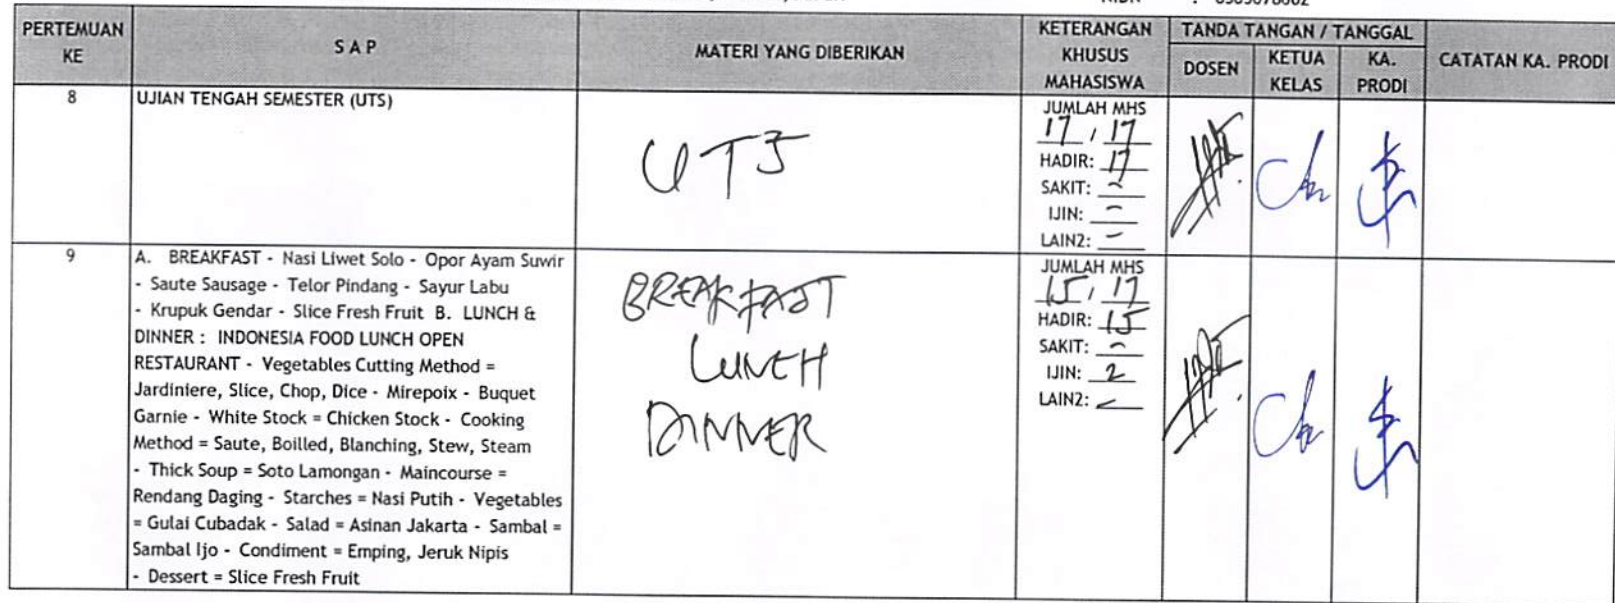 PERTEMUAN KE
S A P
MATERI YANG DIBERIKAN
KETERANGAN KHUSUS MAHASISWA
TANDA TANGAN / TANGGAL
DOSEN
KETUA KELAS
KA. PRODI
CATATAN KA. PRODI
8
UJIAN TENGAH SEMESTER (UTS)
UTS
JUMLAH MHS
17 , 17
HADIR: 17
SAKIT: -
IJIN: -
LAIN2: -
9
A. BREAKFAST - Nasi Liwet Solo - Opor Ayam Suwir
- Saute Sausage - Telor Pindang - Sayur Labu
- Krupuk Gendar - Slice Fresh Fruit B. LUNCH &
DINNER : INDONESIA FOOD LUNCH OPEN
RESTAURANT - Vegetables Cutting Method =
Jardiniere, Slice, Chop, Dice - Mirepoix - Buquet
Garnie - White Stock = Chicken Stock - Cooking
Method = Saute, Boilled, Blanching, Stew, Steam
- Thick Soup = Soto Lamongan - Maincourse =
Rendang Daging - Starches = Nasi Putih - Vegetables
= Gulai Cubadak - Salad = Asinan Jakarta - Sambal =
Sambal Ijo - Condiment = Emping, Jeruk Nipis
- Dessert = Slice Fresh Fruit
BREAKFAST
LUNCH
DINNER
JUMLAH MHS
15 , 17
HADIR: 15
SAKIT: -
IJIN: 2
LAIN2: -